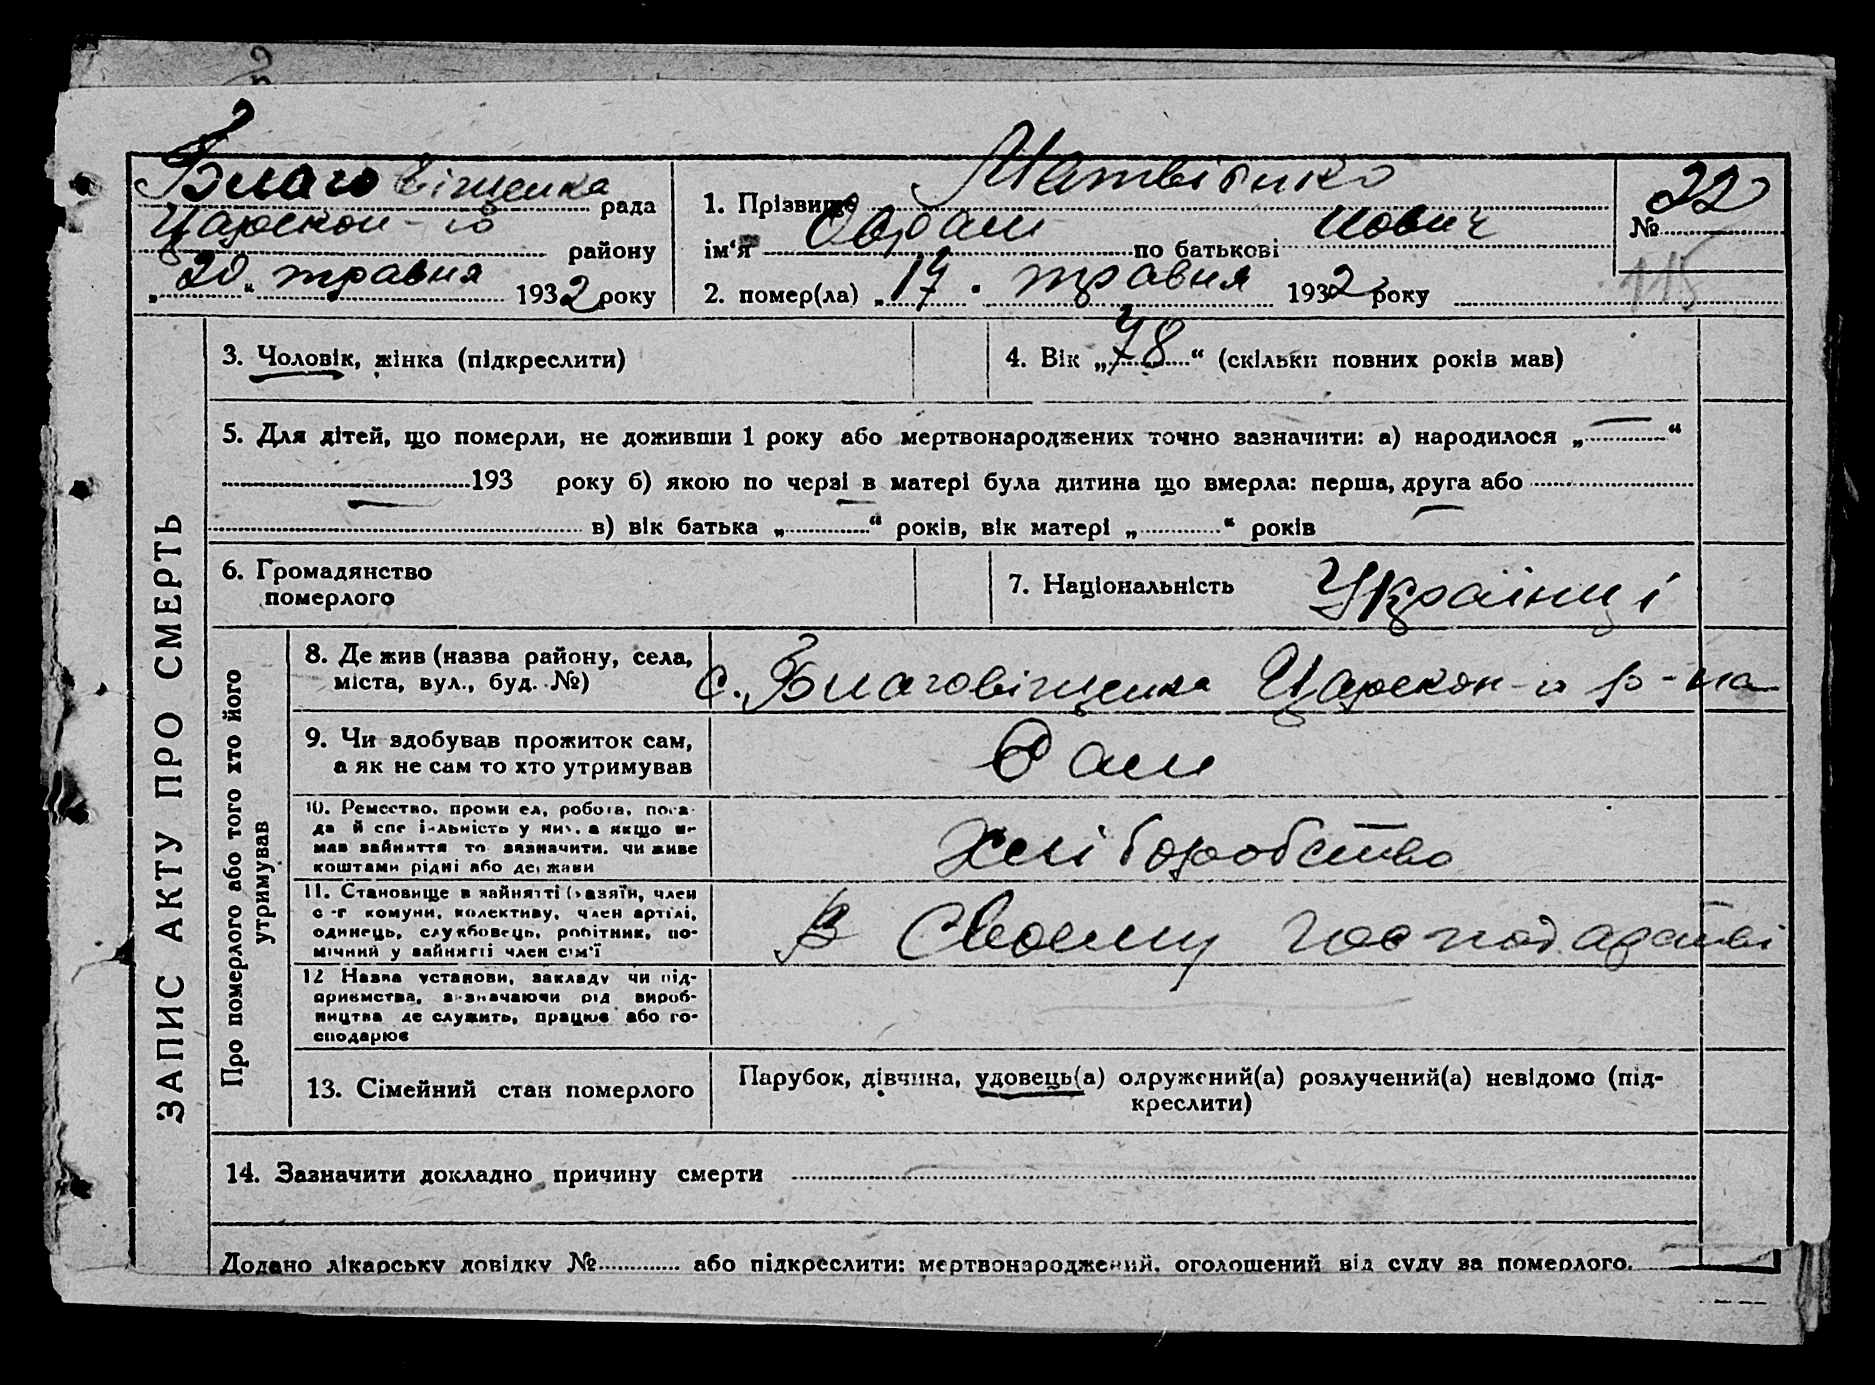 Благовіщенка рада
Царекон-го району
„20“ травня 1932 року
1. Прізвище Матвієнко
ім'я Оврам по батькові Иович
2. помер(ла) „17. травня 1932 року
№ 22
115
ЗАПИС АКТУ ПРО СМЕРТЬ
3. Чоловік, жінка (підкреслити)
4. Вік „78“ (скільки повних років мав)
5. Для дітей, що померли, не доживши 1 року або мертвонароджених точно зазначити: а) народилося „ “
193 року б) якою по черзі в матері була дитина що вмерла: перша, друга або
в) вік батька „ “ років, вік матері „ “ років
6. Громадянство
померлого
7. Національність Українці
Про померлого або того хто його
утримував
8. Де жив (назва району, села,
міста, вул., буд. №)
с. Благовіщенка Царекон-о р-на
9. Чи здобував прожиток сам,
а як не сам то хто утримував
Сам
10. Ремество, проми ел, робота, поса-
да й спе і-льність у ни, а якщо н-
мав зайняття то зазначити, чи живе
коштами рідні або держави
Хліборобство
11. Становище в зайнятті (хазяїн, член
с-г комуни, колективу, член артілі,
одинець, службовець, робітник, по-
мічний у зайнятті член сім'ї
В Своєму господарстві
12 Назва установи, закладу чи під-
приємства, зазначаючи рід вироб-
ництва де служить, працює або го-
сподарює
13. Сімейний стан померлого
Парубок, дівчина, удовець(а) одружений(а) розлучений(а) невідомо (під-
креслити)
14. Зазначити докладно причину смерти
Додано лікарську довідку № або підкреслити: мертвонароджений, оголошений від суду за померлого.